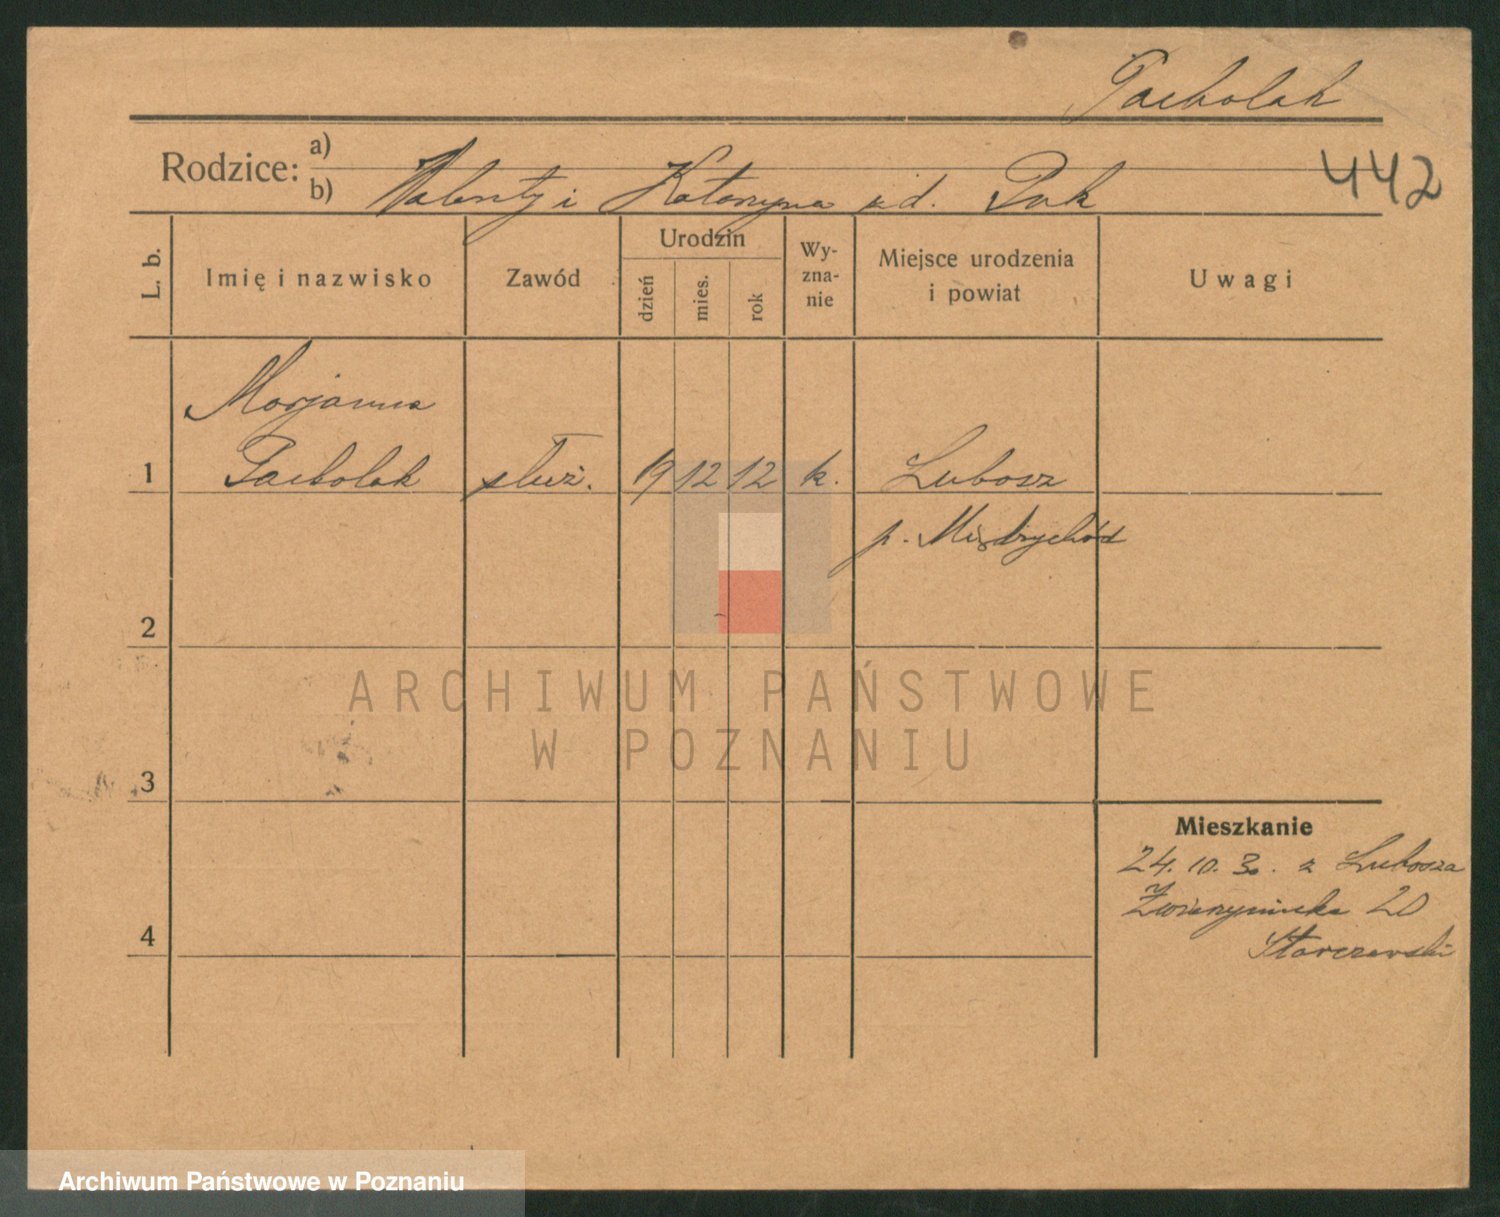 Pacholak
442
Rodzice: a)
b) Walenty i Katarzyna zd. Pak
L. b.
Imię i nazwisko
Zawód
Urodzin
dzień
mies.
rok
Wy-
zna-
nie
Miejsce urodzenia
i powiat
Uwagi
Marjanna
1 Pacholak służ. 19 12 12 k. Lubosz
p. Międzychód
2
3
4
Mieszkanie
24. 10. 30. z Lubosza
Zwierzyniecka 20
Starczewski
ARCHIWUM PAŃSTWOWE
W POZNANIU
Archiwum Państwowe w Poznaniu